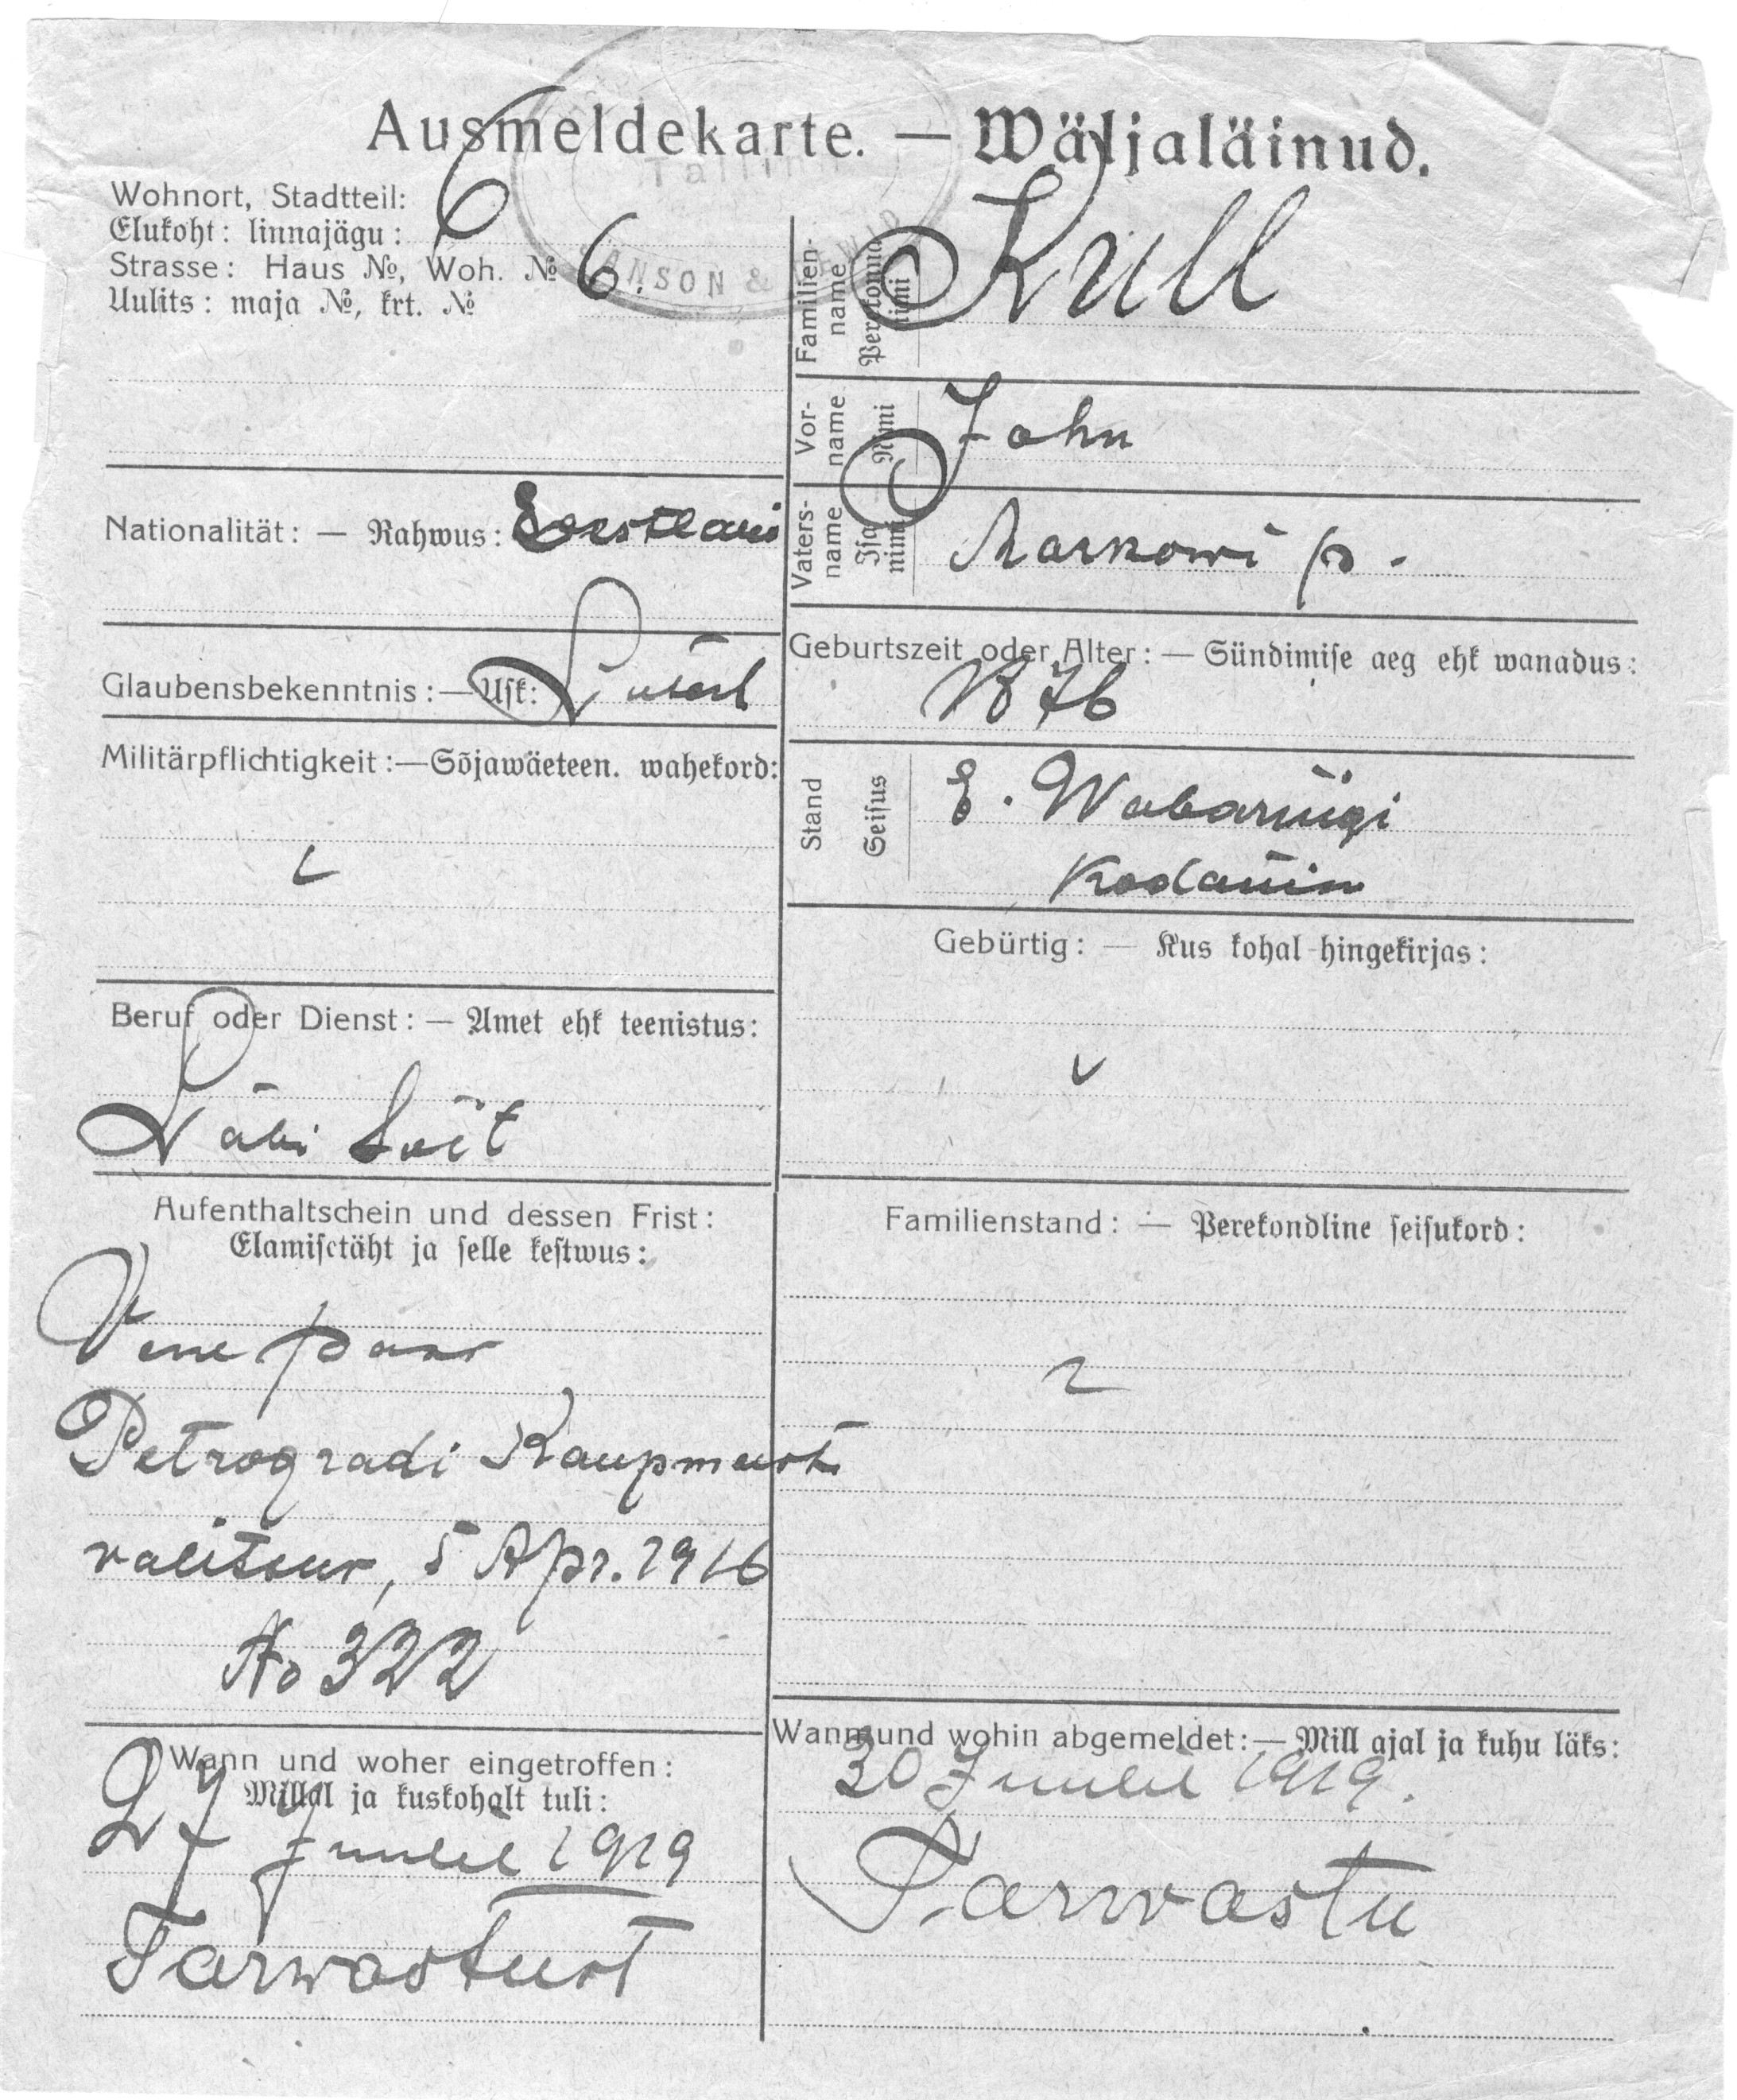 Ausmeldekarte. — Wäljaläinud.
Tallinn
ANSON &
Wohnort, Stadtteil: 6
Elukoht: linnajägu:
Strasse: Haus №, Woh. № 6.
Uulits: maja №, krt. №
Familien-
name
Perekonna
nimi
Krull
Vor-
name
Nimi
John
Nationalität: — Rahwus: Eestlane
Vaters-
name
Isa
nimi
Markowi p.
Glaubensbekenntnis:—Usk: Luterl
Geburtszeit oder Alter: — Sündimise aeg ehk wanadus:
1876
Militärpflichtigkeit:—Sõjawäeteen. wahekord:
Stand
Seisus
E. Wabariigi
Kodanik
Gebürtig: — Kus kohal hingekirjas:
Beruf oder Dienst: — Amet ehk teenistus:
Läbi Sõit
Aufenthaltschein und dessen Frist:
Elamisetäht ja selle kestwus:
Vene pass
Petrogradi Kaupmeeste
valitsus, 5 Apr. 1916
No 322
Familienstand: — Perekondline seisukord:
Wann und woher eingetroffen:
Millal ja kuskohalt tuli:
27 Juulil 1919
Tarwastust
Wann und wohin abgemeldet:— Mill ajal ja kuhu läks:
30 Juulil 1919.
Tarwastu